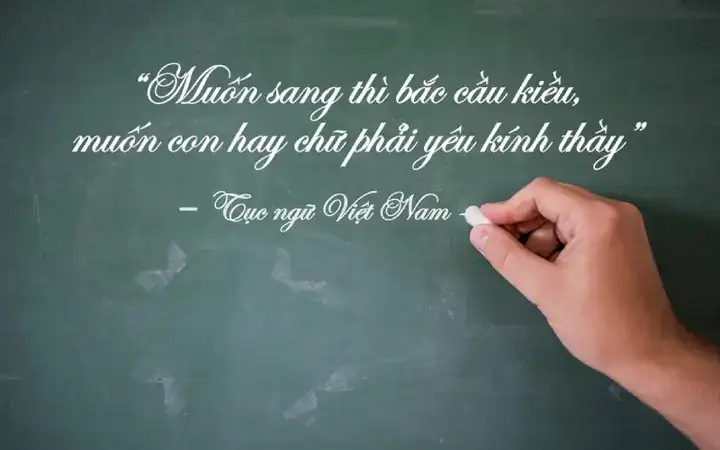 “Muốn sang thì bắc cầu kiều,
muốn con hay chữ phải yêu kính thầy”
– Tục ngữ Việt Nam -